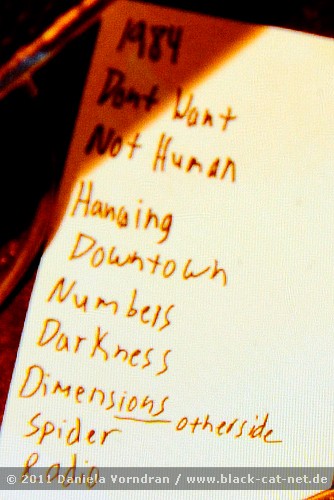 1984
Dont Want
Not Human
Hanging
Downtown
Numbers
Darkness
Dimensions otherside
Spider
Radio
© 2011 Daniela Vorndran / www.black-cat-net.de